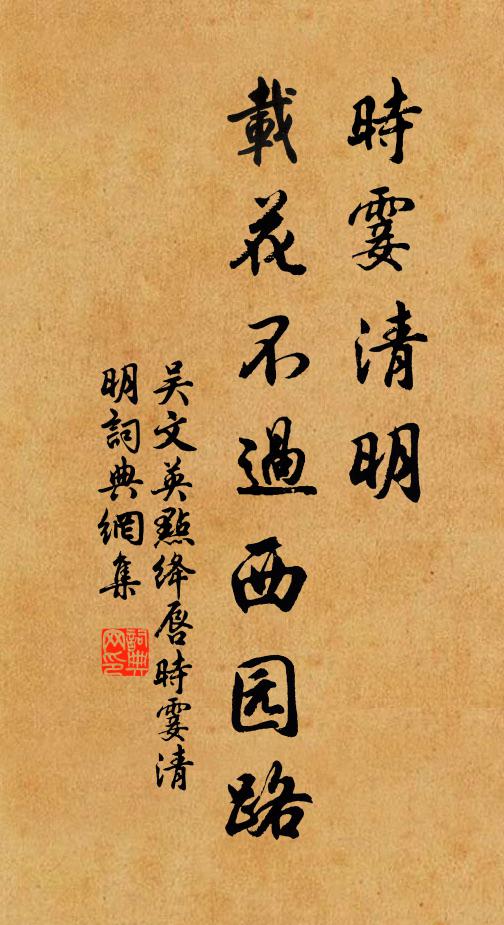 時霎清明
載花不過西园路
吴文英點绛唇時霎清
明詞典網集
詞典网印